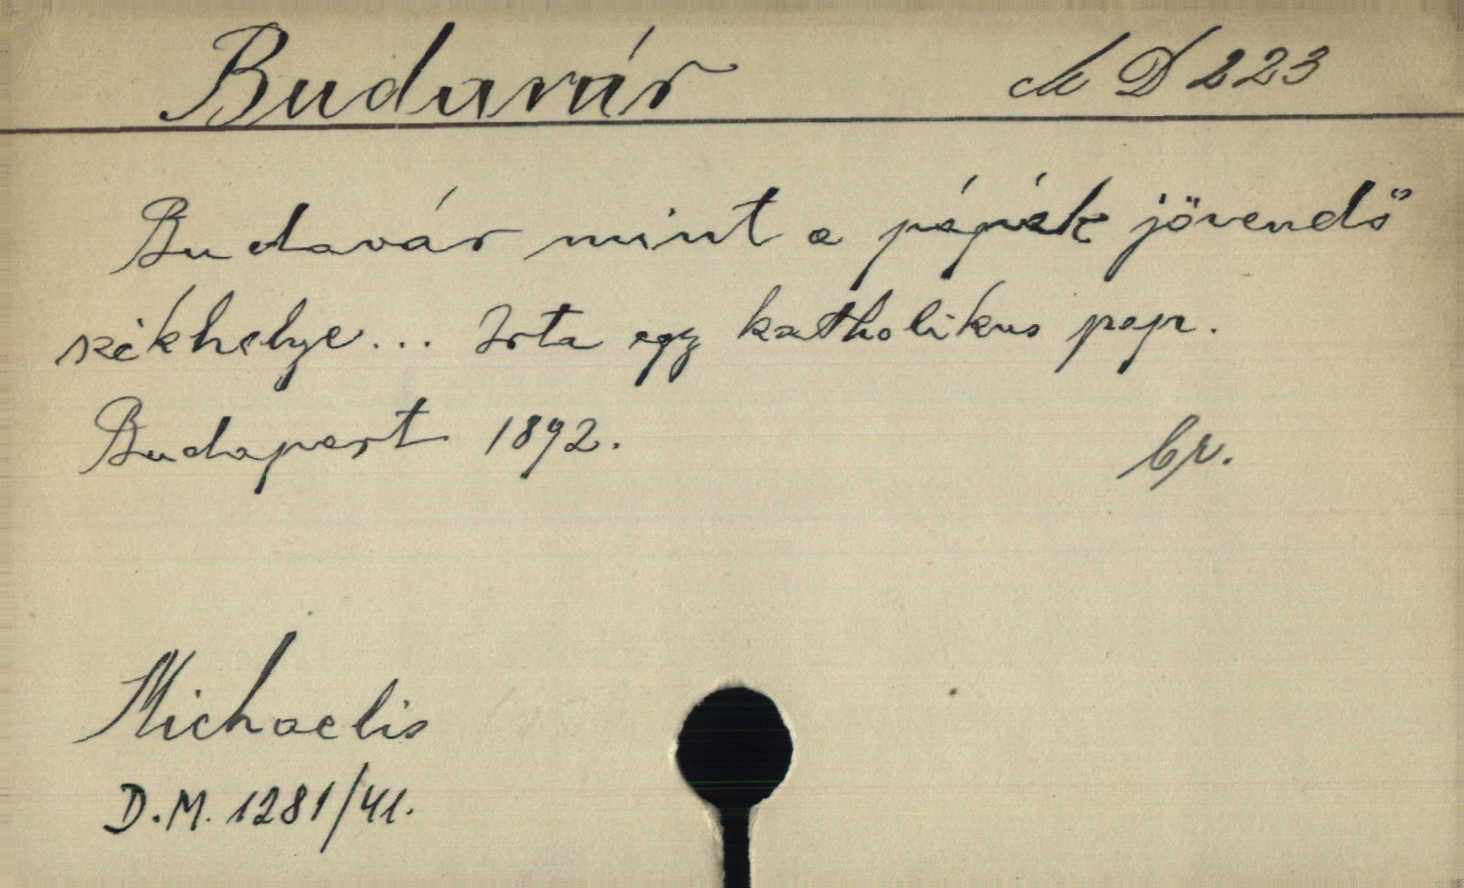 Budavár M D 223
Budavár mint a pápák jövendő
székhelye... Irta egy katholikus pap.
Budapest 1892. br.
Michaelis
D.M. 1281/41.